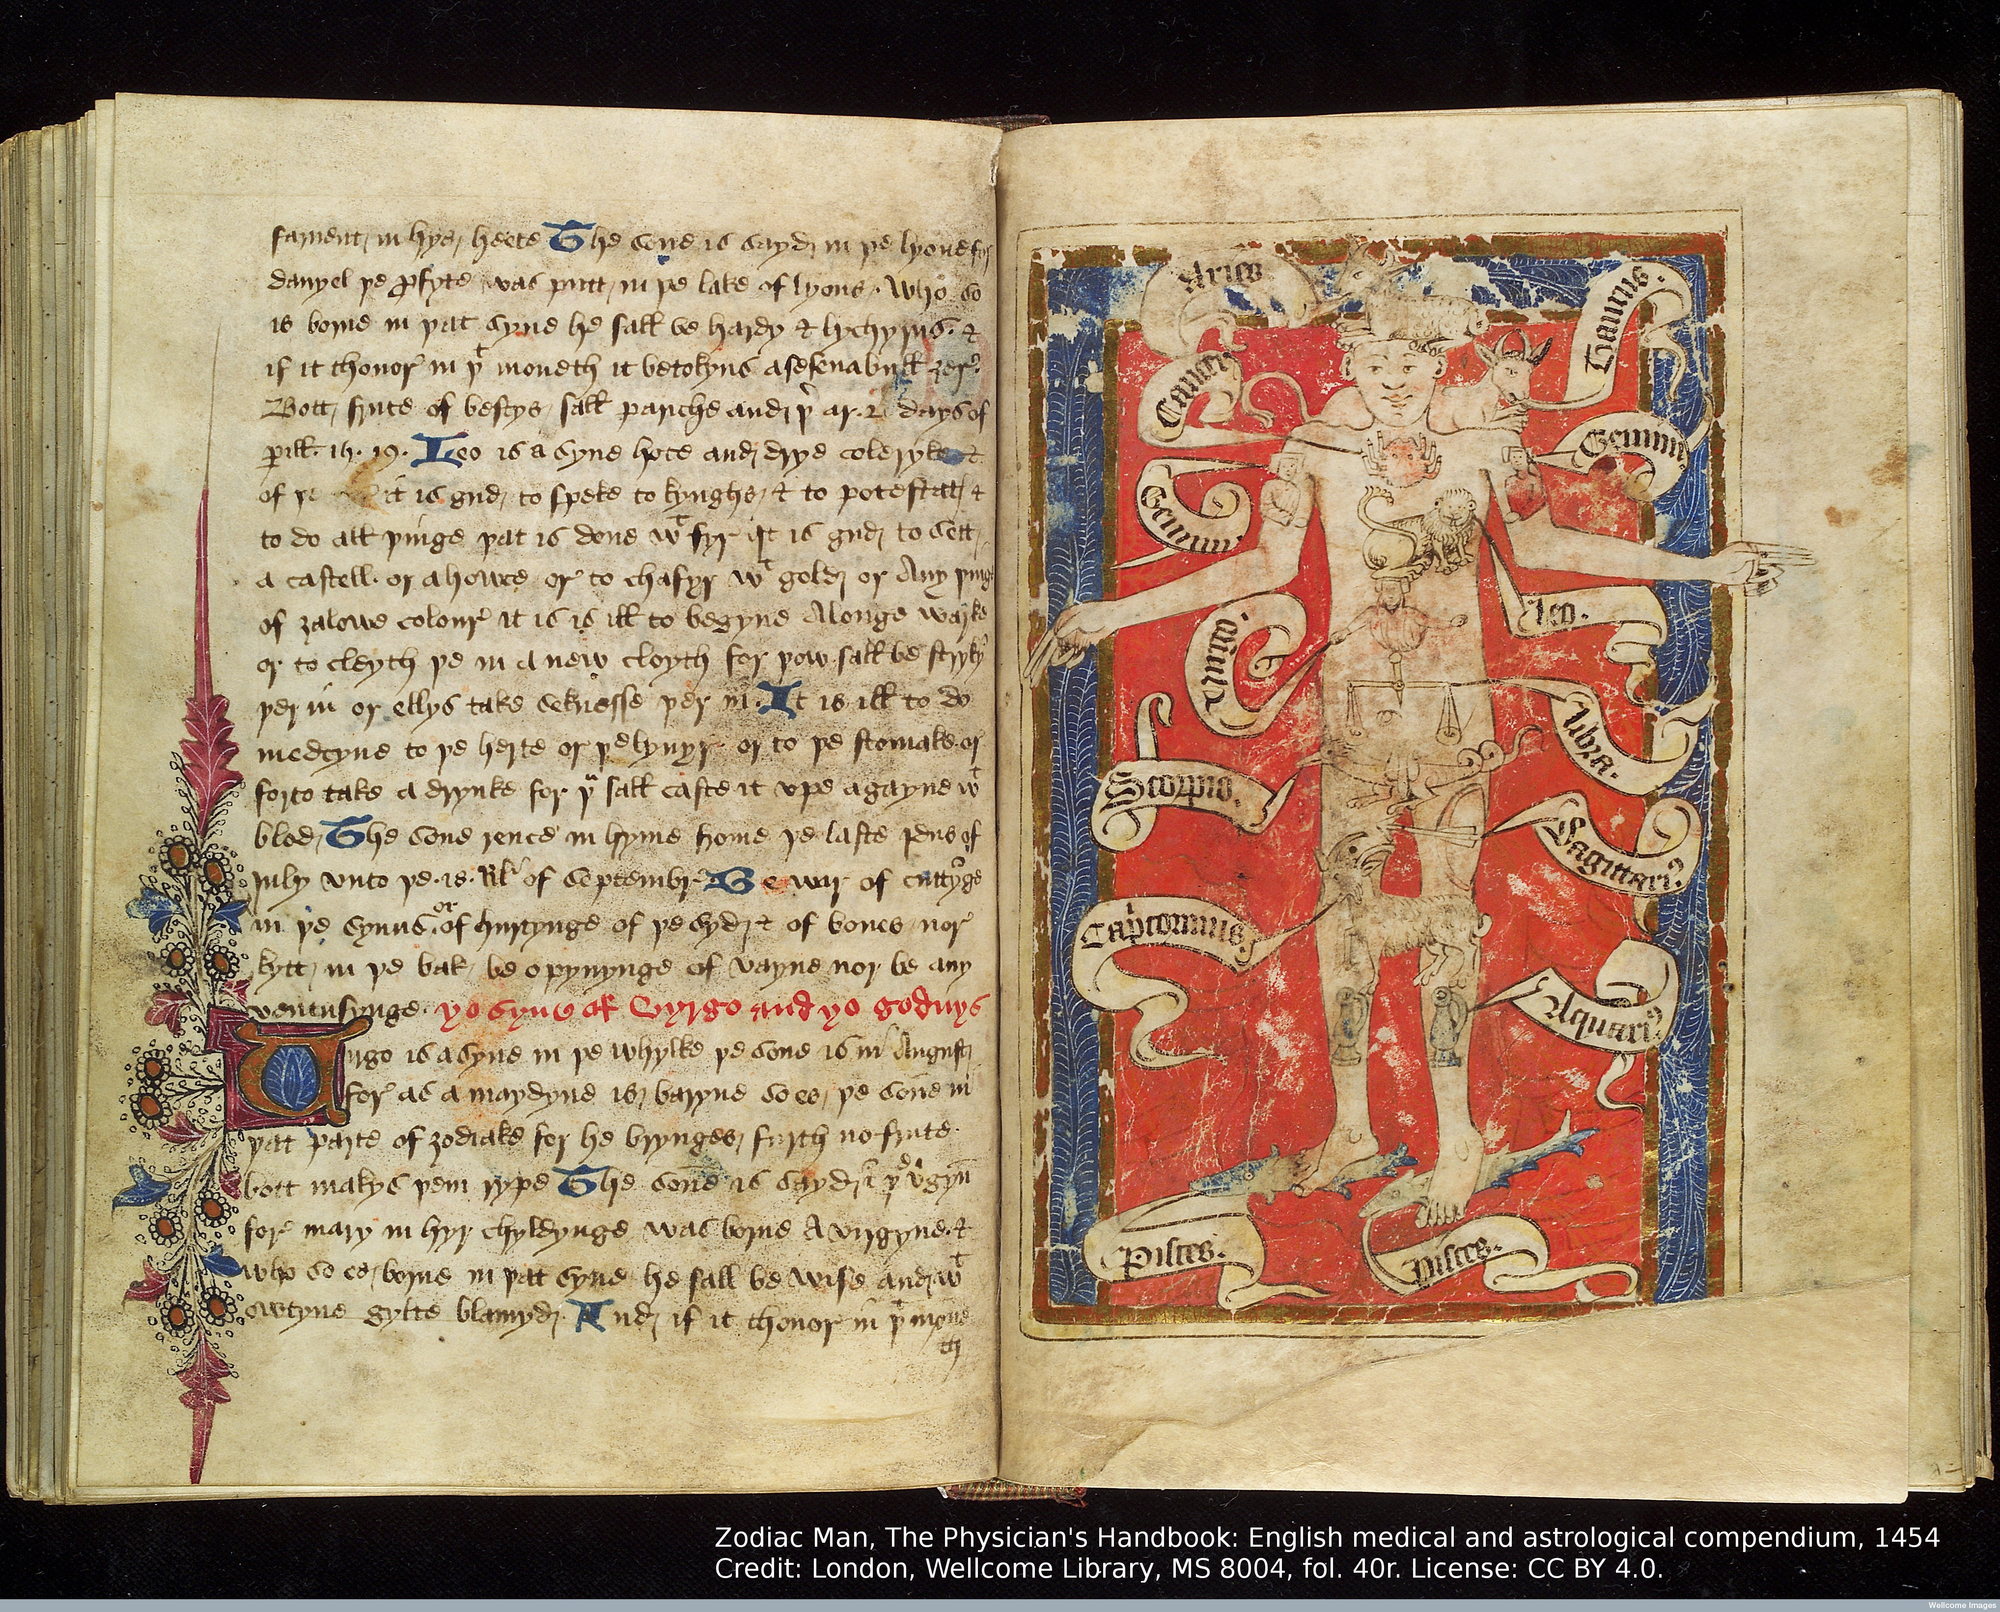 fament in hys hete The sone is sayd in þe lyone for
danyel þe pfyte was putt in þe lake of lyons. Who so
is borne in þat syne he sall be hardy & lychyrus. &
if it thonor in þt moneth it betokyns a sesenabull ȝer.
Bott frute of bestys sall pariche and þr ar. 2 days of
pill. 15. 19. Leo is a syne hote and drye coleryke &
of it is gud to speke to kynghs & to potestat &
to do all þinge þat is done wt fyr it is gud to sett
a castell. or a howse or to chafyr wt gold or Any þing
of ȝalowe colour it is is ill to begyne A longe warke
or to cleyth þe in a new cloyth for þow sall be stryky
þer in or ellys take seknesse þer in. It is ill to do
medcyne to þe herte or þe lynyr. or to þe stomake. or
forto take a drynke for þu sall caste it vpe agayne wt
blod, The sone rence in hyme frome þe laste þens of
July vnto þe. 18. kl of Septembr Be war of cuttyge
in þe synus or of hurtynge of þe syd & of bones nor
kytt in þe bak be opynynge of vayne nor be any
ventusynge. þo syne of Vyrgo and þo goduys
Virgo is a syne in þe whylke þe sone is in August
for as a maydyne is baryne so es þe sone in
þat parte of zodiake for he brynges furth no frute.
bott makys þem rype The sone is sayd in þe vgyn
for mary in hyr chyldynge was borne A virgyne. &
who so es borne in þat syne he sall be wise and wt
owtyne gylte blamyd. And if it thonor in þt mone
th
Aries
Taurus.
Cancer
Gemini
Gemini
Leo.
Virgo.
Libra.
Scorpio.
Sagittari9
Capricornus.
Aquari9
Pisces.
Pisces.
Zodiac Man, The Physician's Handbook: English medical and astrological compendium, 1454
Credit: London, Wellcome Library, MS 8004, fol. 40r. License: CC BY 4.0.
Wellcome Images